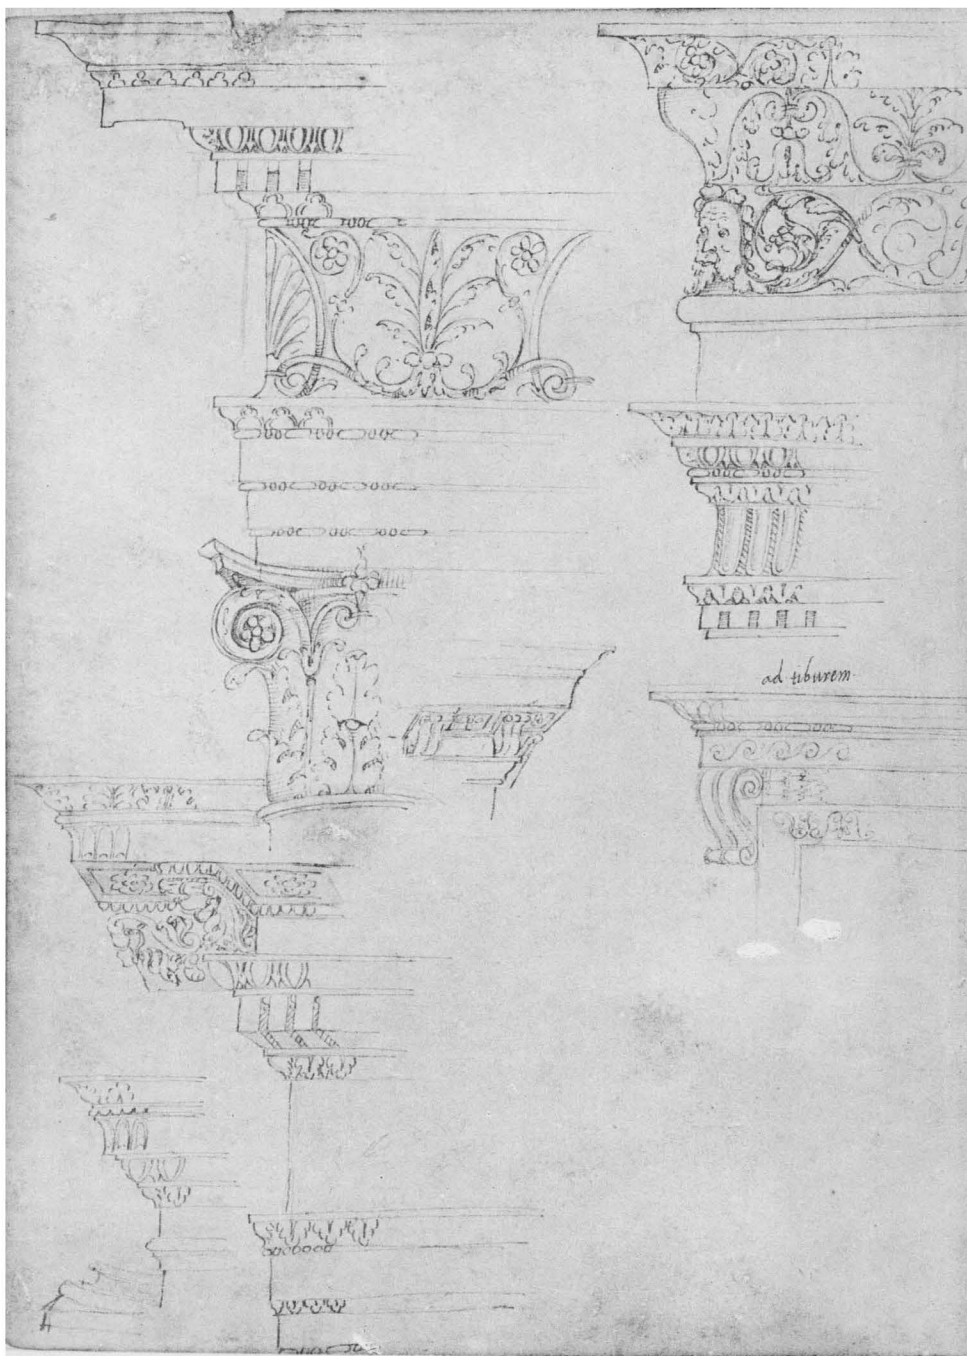 ad tiburem